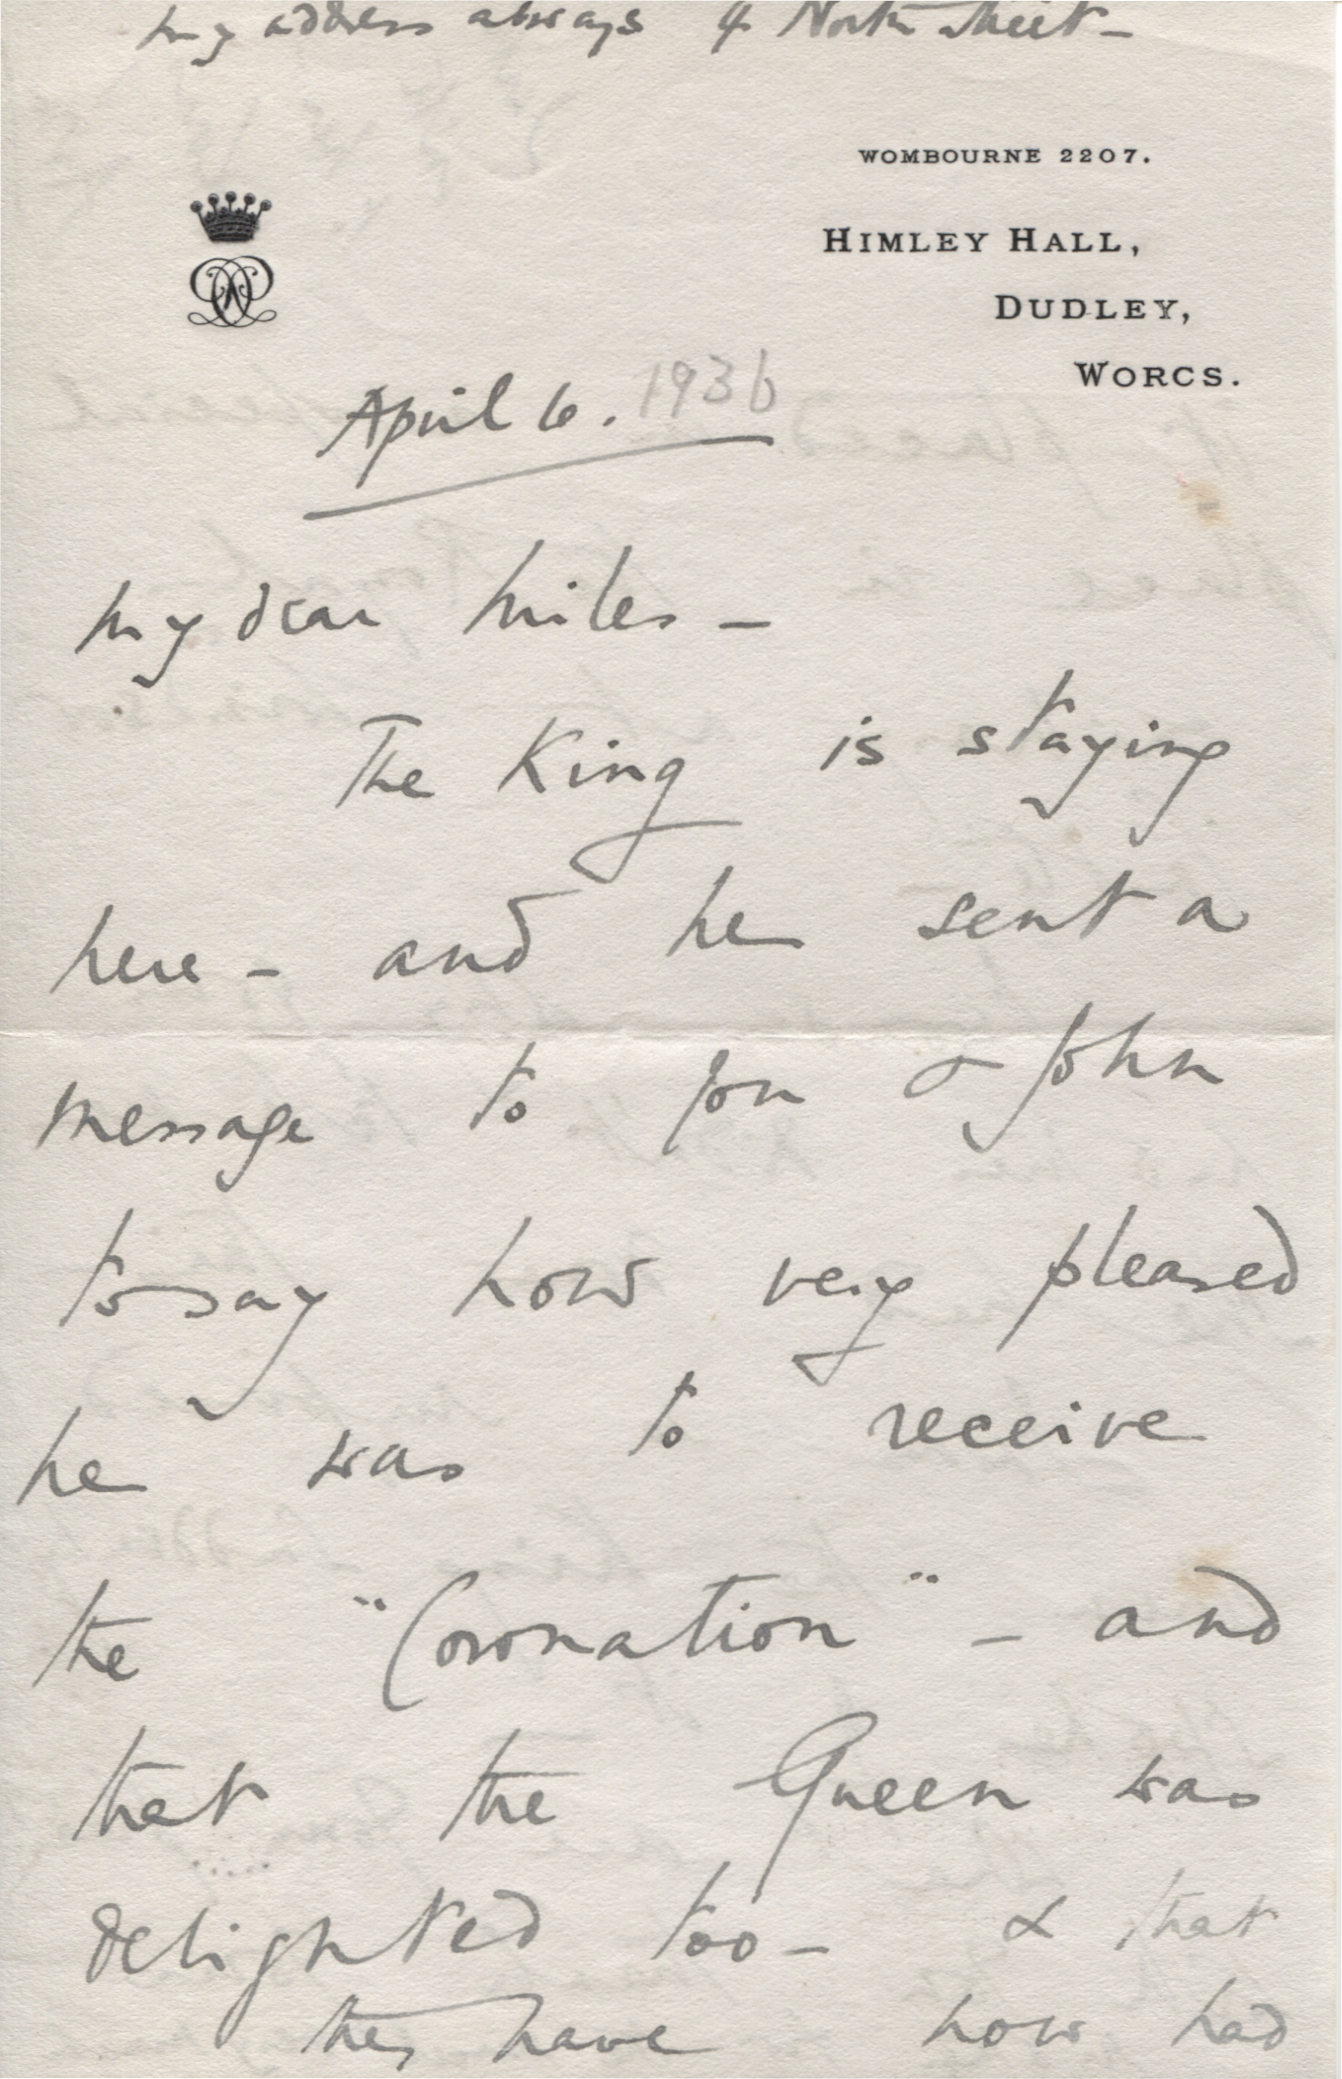 my address always 4 North Street –
WOMBOURNE 2207.
HIMLEY HALL,
DUDLEY,
WORCS.
April 6. 1936
My dear Miles –
The King is staying
here – and he sent a
message to you & John
to say how very pleased
he was to receive
the "Coronation" – and
that the Queen was
delighted too – & that
they have now had